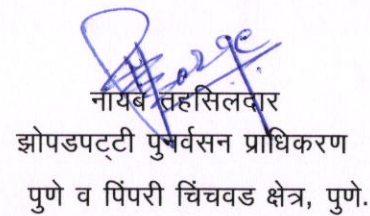 नायब तहसिलदार
झोपडपट्टी पुनर्वसन प्राधिकरण
पुणे व पिंपरी चिंचवड क्षेत्र, पुणे.